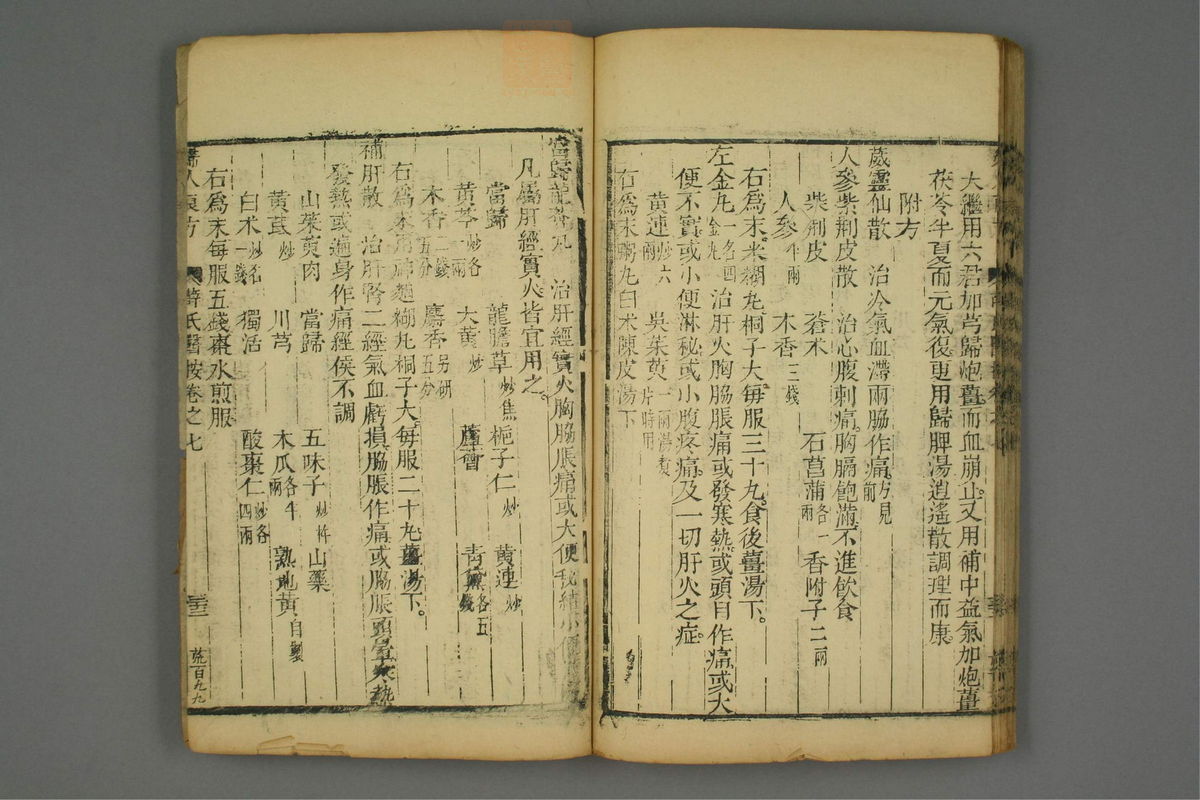 大繼用六君加芎歸炮薑而血崩止又用補中益氣加炮薑
茯苓半夏而元氣復更用歸脾湯逍遙散調理而康
附方
葳靈仙散 治冷氣血滯兩脇作痛方見前
人參紫荊皮散 治心腹刺痛胸膈飽滿不進飲食
紫荊皮 蒼朮 石菖蒲各一兩 香附子二兩
人參半兩 木香三錢
右為末米糊丸桐子大每服三十丸食後薑湯下
左金丸一名四金丸 治肝火胸脇脹痛或發寒熱或頭目作痛或大
便不實或小便淋秘或小腹疼痛及一切肝火之症
黃連炒六兩 吳茱萸一兩湯煮片時用
右為末粥丸白朮陳皮湯下
當歸龍薈丸 治肝經實火胸脇脹痛或大便秘結小便
凡屬肝經實火皆宜用之
當歸 龍膽草炒焦 梔子仁炒 黃連炒
黃芩炒各一兩 大黃炒 蘆薈 青黛各五錢
木香二錢五分 麝香另研五分
右為末 麵糊丸桐子大每服二十丸薑湯下
補肝散 治肝腎二經氣血虧損脇脹作痛或脇脹頭暈寒熱
發熱或遍身作痛經候不調
山茱萸肉 當歸 五味子炒杵 山藥
黃芪炒 川芎 木瓜各半兩 熟地黃自製
白朮炒各一錢 獨活 酸棗仁炒各四兩
右為末每服五錢棗水煎服
婦人良方 薛氏醫按卷之七